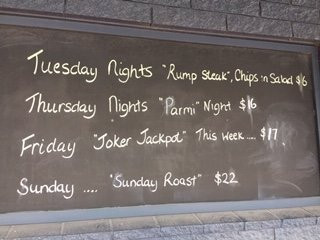 Tuesday Nights "Rump Steak", Chips 'n Salad $16
Thursday Nights "Parmi" Night $16
Friday "Joker Jackpot" This week .... $17
Sunday .... "Sunday Roast" $22